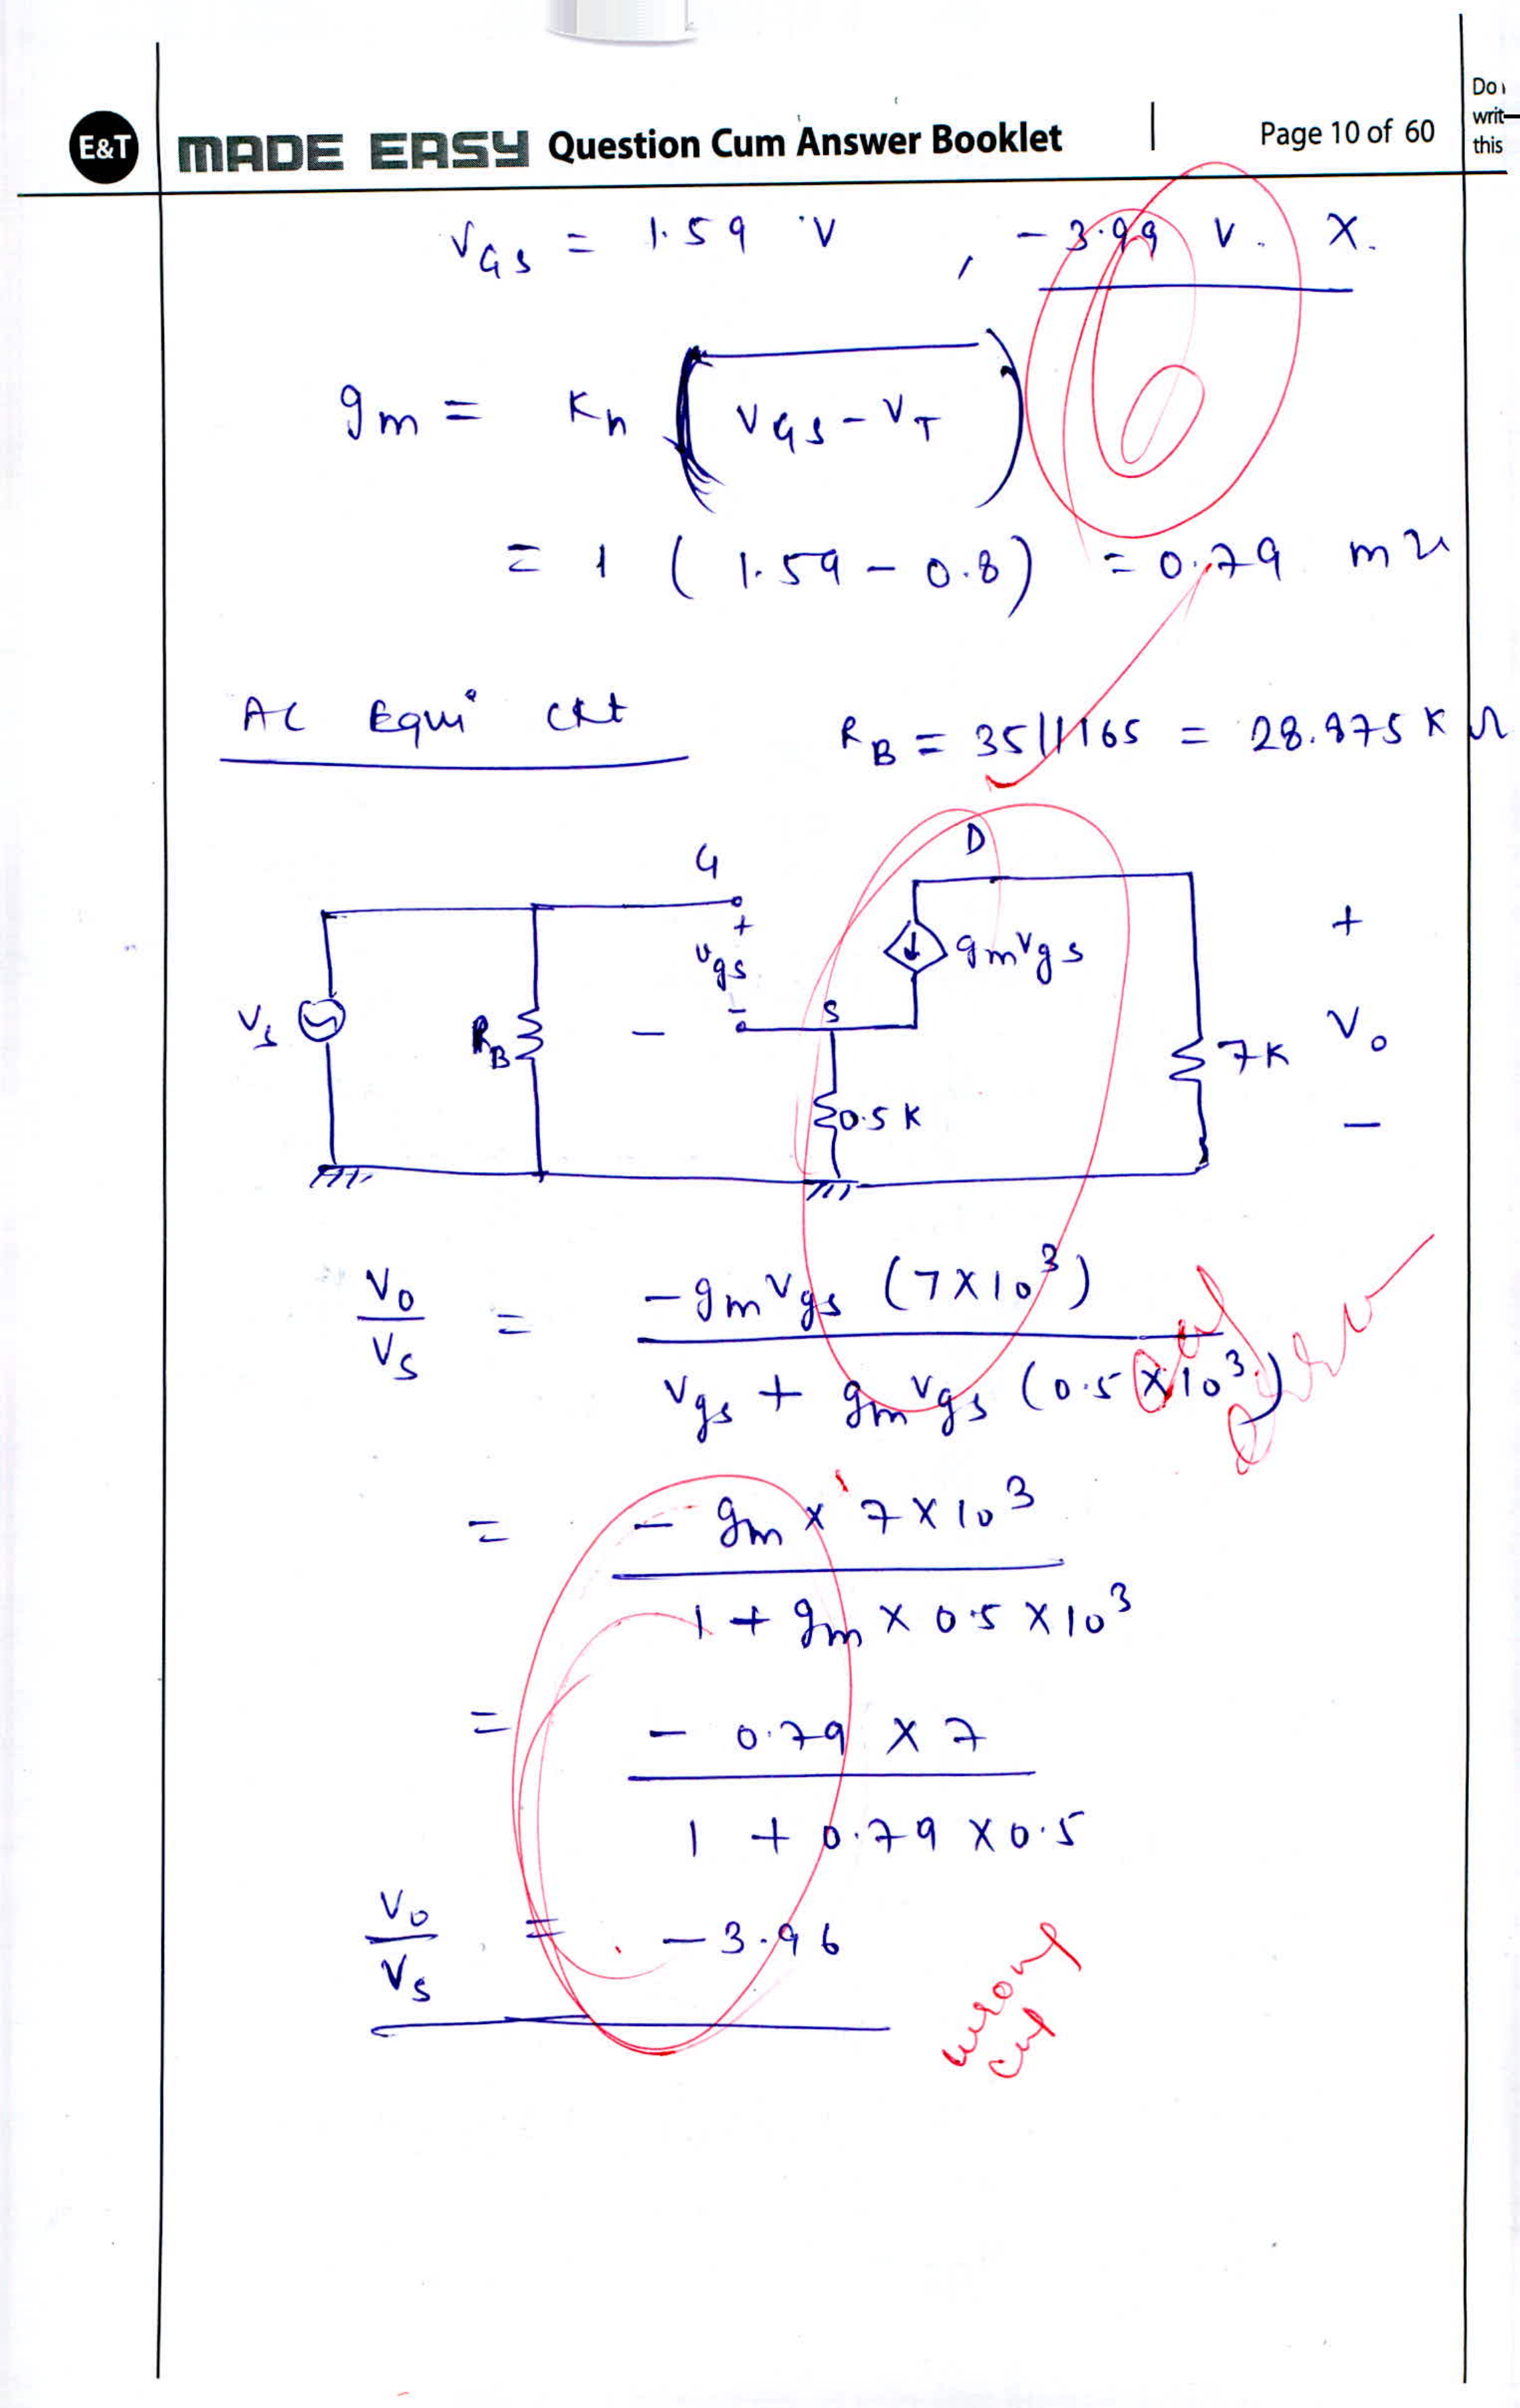 E&T MADE EASY Question Cum Answer Booklet Page 10 of 60
writ
this
VGS = 1.59 V , -3.99 V. X.
6
gm = Kn (VGS - VT)
= 1 (1.59 - 0.8) = 0.79 m℧
AC Equi Ckt RB = 35||165 = 28.875 K Ω
G D
+
vgs
-
gmvgs
S
Vs
RB
-
0.5 K
7K
+
Vo
-
Vo/Vs = -gmvgs (7×10³) / vgs + gmvgs (0.5×10³)
= -gm × 7×10³ / 1 + gm × 0.5 × 10³
= -0.79 × 7 / 1 + 0.79 × 0.5
Vo/Vs = -3.96
wrong